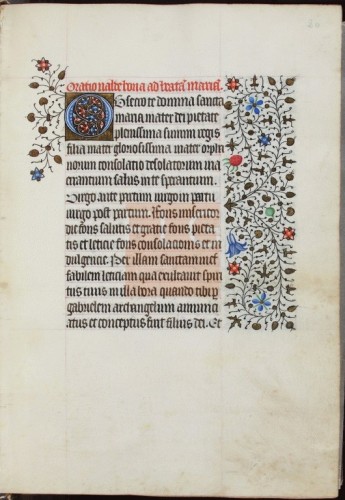 Oratio valde bona ad beatam mariam
Obsecro te domina sancta
maria mater dei pietate
plenissima summi regis
filia mater gloriosissima mater orpha
norum consolatio desolatorum via
errantium salus in te sperantium
Virgo ante partum virgo in partu
virgo post partum. Fons misericor
die fons salutis et gratie fons pieta
tis et leticie fons consolacionis et in
dulgencie. Per illam sanctam inef
fabilem leticiam qua exultauit spiri
tus tuus in illa hora quando tibi per
gabrielem archangelum annunci
atus et conceptus fuit filius dei. Et